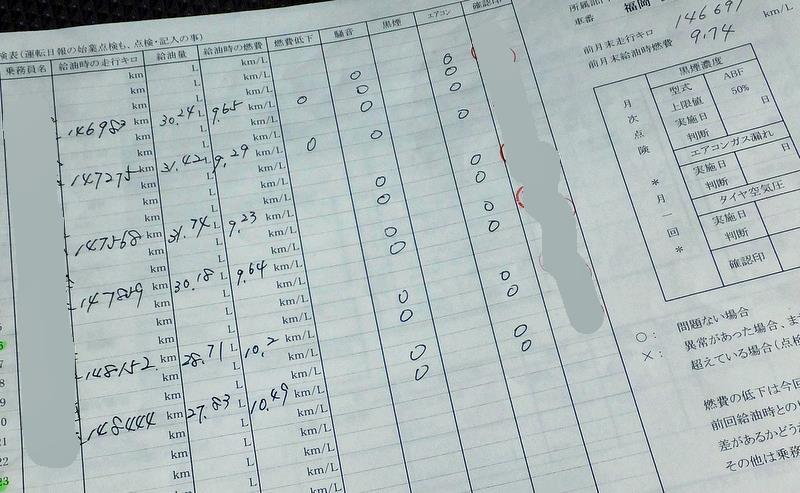 検表(運転日報の始業点検も、点検・記入の事)
乗務員名 給油時の走行キロ 給油量 給油時の燃費 燃費低下 騒音 黒煙 エアコン 確認印
km L km/L ○ ○
km L km/L ○ ○
km L km/L ○ ○ ○
146983 km 30.24 L 9.65 km/L ○ ○
km L km/L ○
147275 km 31.42 L 9.29 km/L ○
km L km/L ○ ○
km L km/L ○ ○
147568 km 31.74 L 9.23 km/L ○ ○
km L km/L ○ ○
147859 km 30.18 L 9.64 km/L
km L km/L ○ ○
km L km/L ○ ○
148152 km 28.71 L 10.2 km/L
km L km/L ○ ○
km L km/L ○ ○
148444 km 27.83 L 10.49 km/L
km L km/L
km L km/L
車番 福岡
前月末走行キロ 146691
前月末給油時燃費 9.74 km/L
月次点険 *月一回*
黒煙濃度
型式 ABF
上限値 50%
実施日 日
判断
エアコンガス漏れ
実施日 日
判断
タイヤ空気圧
実施日
判断
確認印
○: 問題ない場合
×: 異常があった場合、ま
超えている場合(点検
燃費の低下は今回
前回給油時との
差があるかどう
その他は乗務
21
22
23